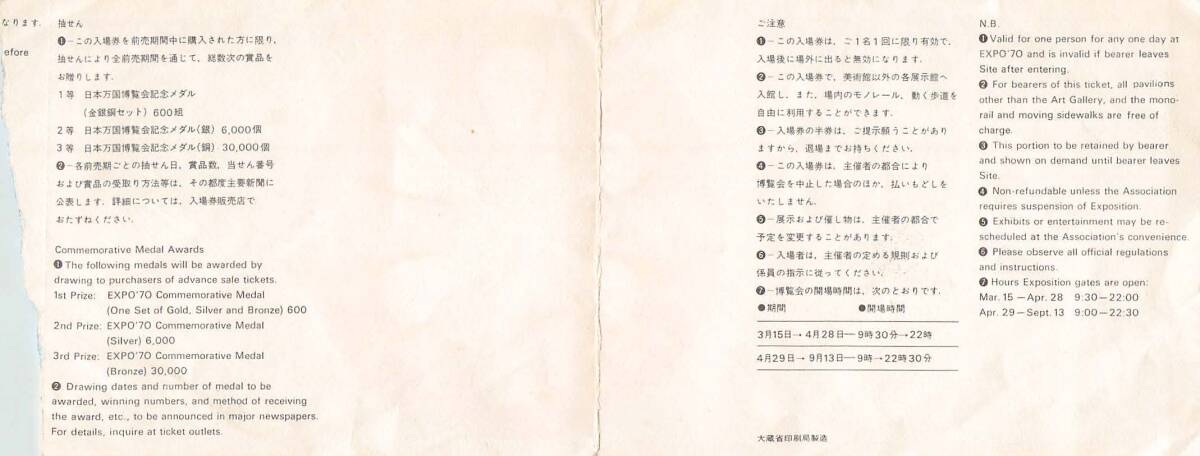 なります.
efore
抽せん
❶－この入場券を前売期間中に購入された方に限り,
抽せんにより全前売期間を通じて, 総数次の賞品を
お贈りします.
1等 日本万国博覧会記念メダル
(金銀銅セット) 600組
2等 日本万国博覧会記念メダル(銀) 6,000個
3等 日本万国博覧会記念メダル(銅) 30,000個
❷－各前売期ごとの抽せん日, 賞品数, 当せん番号
および賞品の受取り方法等は, その都度主要新聞に
公表します. 詳細については, 入場券販売店で
おたずねください.
Commemorative Medal Awards
❶ The following medals will be awarded by
drawing to purchasers of advance sale tickets.
1st Prize: EXPO'70 Commemorative Medal
(One Set of Gold, Silver and Bronze) 600
2nd Prize: EXPO'70 Commemorative Medal
(Silver) 6,000
3rd Prize: EXPO'70 Commemorative Medal
(Bronze) 30,000
❷ Drawing dates and number of medal to be
awarded, winning numbers, and method of receiving
the award, etc., to be announced in major newspapers.
For details, inquire at ticket outlets.
ご注意
❶－この入場券は, ご1名1回に限り有効で,
入場後に場外に出ると無効になります.
❷－この入場券で, 美術館以外の各展示館へ
入館し, また, 場内のモノレール, 動く歩道を
自由に利用することができます.
❸－入場券の半券は, ご提示願うことがあり
ますから, 退場までお持ちください.
❹－この入場券は, 主催者の都合により
博覧会を中止した場合のほか, 払いもどしを
いたしません.
❺－展示および催し物は, 主催者の都合で
予定を変更することがあります.
❻－入場者は, 主催者の定める規則および
係員の指示に従ってください.
❼－博覧会の開場時間は, 次のとおりです.
●期間 ●開場時間
3月15日→4月28日－9時30分→22時
4月29日→9月13日－9時→22時30分
大蔵省印刷局製造
N.B.
❶ Valid for one person for any one day at
EXPO'70 and is invalid if bearer leaves
Site after entering.
❷ For bearers of this ticket, all pavilions
other than the Art Gallery, and the mono-
rail and moving sidewalks are free of
charge.
❸ This portion to be retained by bearer
and shown on demand until bearer leaves
Site.
❹ Non-refundable unless the Association
requires suspension of Exposition.
❺ Exhibits or entertainment may be re-
scheduled at the Association's convenience.
❻ Please observe all official regulations
and instructions.
❼ Hours Exposition gates are open:
Mar. 15－Apr. 28 9:30－22:00
Apr. 29－Sept. 13 9:00－22:30